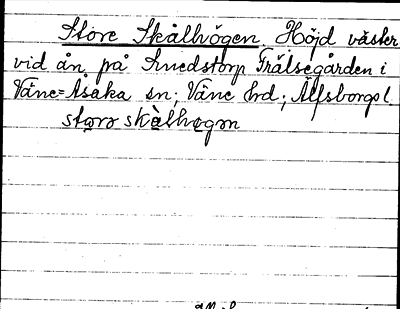 Store Skålhögen. Höjd väster
vid ån på Smedstorp Frälsegården i
Väne-Åsaka sn; Väne hd; Älfsborgs l.
storə skàlhøgən